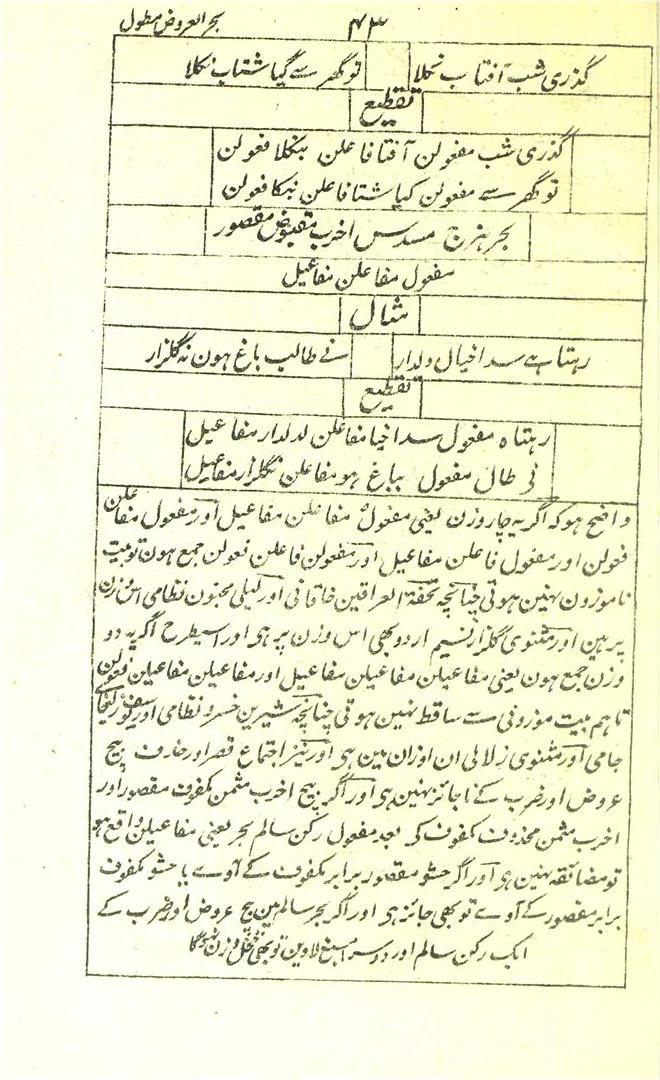 بحر العروض مطول ۴۳
گذری شب آفتاب نکلا توگھر سے گیا شتاب نکلا
تقطیع
گذری شب مفعولن آفتا فاعلن بنکلا فعولن
توگھر سے مفعولن کیا شتا فاعلن نبکا فعولن
بحر ہزج مسدس اخرب مقبوض مقصور
مفعول مفاعلن مفاعیل
مثال
رہتا ہے سدا خیال دلدار نے طالب باغ ہون نہ گلزار
تقطیع
رہتاہ مفعول سدا خیا مفاعلن لدلدار مفاعیل
نی طال مفعول بباغ ہو مفاعلن نگلزار مفاعیل
واضح ہو کہ اگر یہ چار وزن یعنی مفعول مفاعلن مفاعیل اور مفعول مفاعلن
فعولن اور مفعول فاعلن مفاعیل اور مفعولن فاعلن فعولن جمع ہون توبیت
ناموزون نہین ہوتی چنانچہ تحفۃ العراقین خاقانی اور لیلی مجنون نظامی اس وزن
پر ہین اور مثنوی گلزار نسیم اردو بھی اس وزن پر ہی اور اسیطرح اگر یہ دو
وزن جمع ہون یعنی مفاعیلن مفاعیلن مفاعیل اور مفاعیلن مفاعیلن فعولن
تاہم بیت موزونی سے ساقط نہین ہوتی چنانچہ شیرین خسرو نظامی اور یوسف زلیخاے
جامی اور مثنوی زلالی ان اوزان مین ہی اور نیز اجتماع قصر اور حذف بیچ
عروض اور ضرب کے ناجائز نہین ہی اور اگر بیچ اخرب مثمن مکفوف مقصور اور
اخرب مثمن محذوف مکفوف کہ بعد مفعول رکن سالم بحر یعنی مفاعیلن واقع ہو
تو مضائقہ نہین ہی اور اگر حشو مقصور برابر مکفوف کے آوے یا حشو مکفوف
برابر مقصور کے آوے تو بھی جائز ہی اور اگر بحر سالم مین بیچ عروض اور ضرب کے
ایک رکن سالم اور دوسرا مسبغ لاوین تو بھی وزن نہوگا